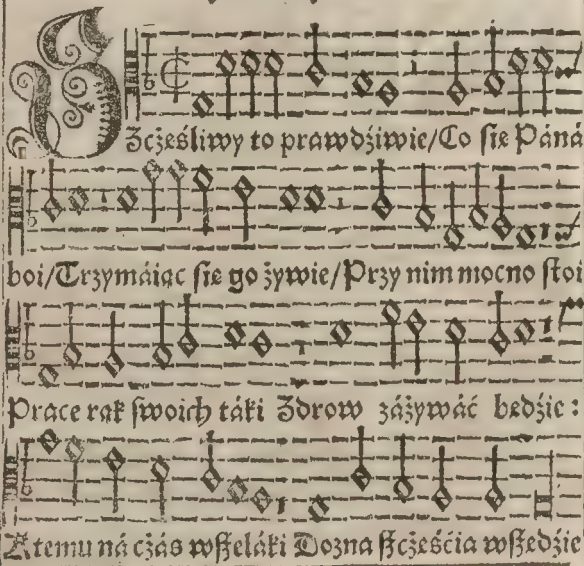 SZcżęśliwy to prawdźiwie/Co ſię Páná
boi/Trzymáiąc ſię go żywie/Przy nim mocno ſtoi
Prace rąk ſwoich táki Zdrow záżywáć będźie :
K temu ná cżás wſzeláki Dozna ſzcżęśćia wſzędźie